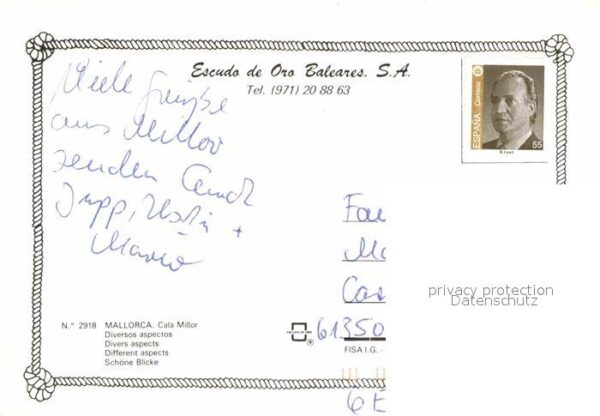 Escudo de Oro Baleares. S.A.
Tel. (971) 20 88 63
Viele Grüße
aus Millor
senden Euch
Jupp, +
ESPAÑA Correos
55
privacy protection
Datenschutz
61350
N.º 2918 MALLORCA. Cala Millor
Diversos aspectos
Divers aspects
Different aspects
Schöne Blicke
FISA I.G. -